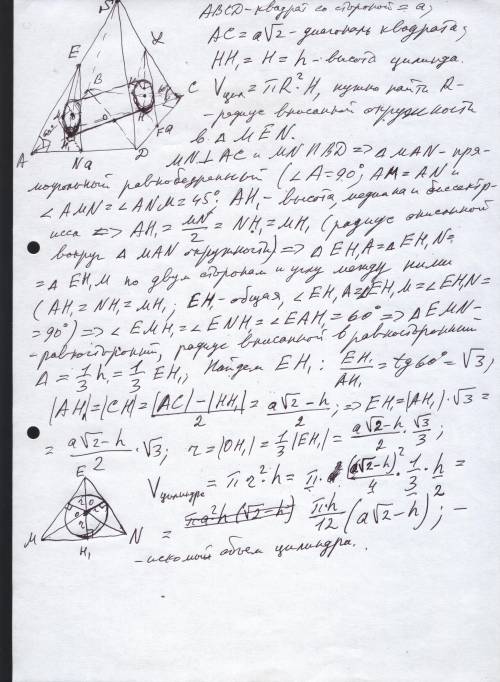 ABCD-квадрат со стороной = a;
AC = a√2 - диагональ квадрата;
HH₁ = H = h - высота цилинда.
V цил = πR²·H, нужно найти R-
радиус вписанной окружности
в Δ MEN.
MN⊥AC и MN∥BD => Δ MAN - пря-
моугольный равнобедренный (∠A=90°; AM=AN и
∠AMN=∠ANM=45°. AH₁ - высота, медиана и биссектр-
исса => AH₁ = MN/2 = NH₁ = MH₁ (радиус описанной
вокруг Δ MAN окружности) => Δ EH₁A = Δ EH₁N =
= Δ EH₁M по двум сторонам и углу между ними
(AH₁ = NH₁ = MH₁; EH - общая, ∠EH₁A = ∠EH₁M = ∠EH₁N =
= 90°) => ∠EMH₁ = ∠ENH₁ = ∠EAH₁ = 60° => Δ EMN -
- равносторонний, радиус вписанной в равносторонний
Δ = 1/3 h = 1/3 EH₁, Найдем EH₁: EH₁/AH₁ = tg60° = √3;
|AH₁| = |CH| = (|AC| - |HH₁|)/2 = (a√2-h)/2; => EH₁ = |AH₁|·√3 =
= (a√2-h)/2 · √3; r = |OH₁| = 1/3 |EH₁| = (a√2-h)/2 · √3/3;
V цилиндра = π r²·h = π · (a√2-h)²/4 · 1/3 · h/2 =
= πa²h(√2-h) πh/12 (a√2-h); -
- искомый объем цилиндра.
S
E
L
B
C
A
N
a
D
F
a
H
O
E
M
N
H₁
O
r
r
r